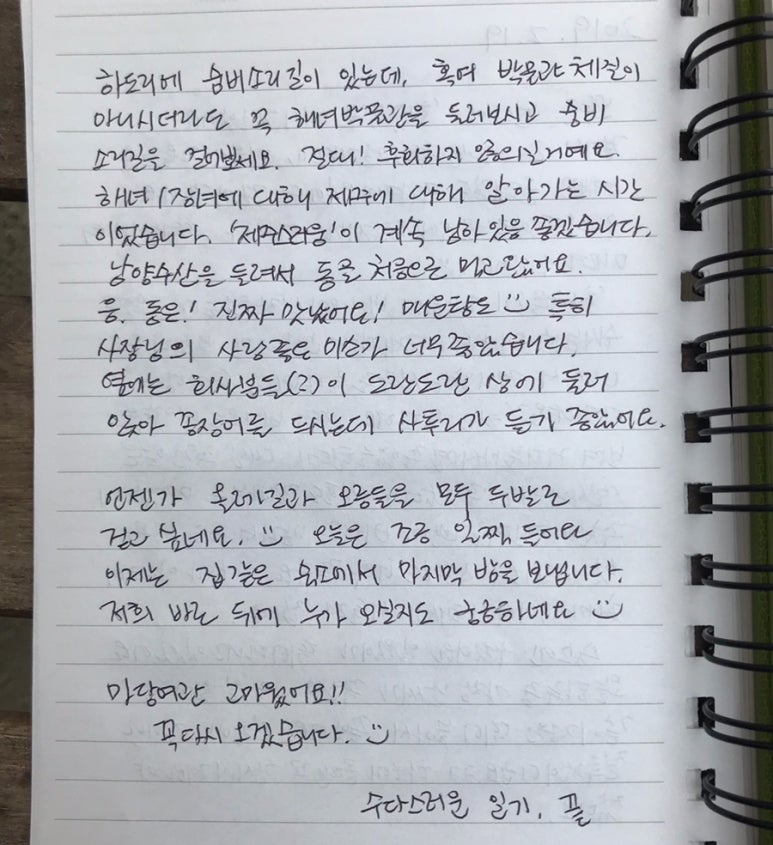 하도리에 숨비소리길이 있는데, 혹여 박물관 체질이
아니시더라도 꼭 해녀박물관을 둘러보시고 숨비
소리길을 걸어보세요. 절대! 후회하지 않으실거예요.
해녀/잠녀에 대해 제주에 대해 알아가는 시간
이었습니다. '제주스러움'이 계속 남아있음 좋겠습니다.
남양수산을 들려서 돌 처음으로 먹고왔어요.
응. 좋은! 진짜 맛났어요! 매운탕도 특히
사장님의 사랑 미소가 너무 좋았습니다.
옆에는 회사분들(?)이 도란도란 상에 둘러
앉아 꽁장어를 드시는데 사투리가 듣기 좋았어요.
언젠가 올레길과 오름들을 모두 두발로
걷고 싶네요. 오늘은 조금 일찍 들어와
이제는 집 같은 숙소에서 마지막 밤을 보냅니다.
저희 바로 뒤에 누가 오실지도 궁금하네요
마당여관 고마웠어요!!
꼭 다시 오겠습니다.
수다스러운 일기, 끝